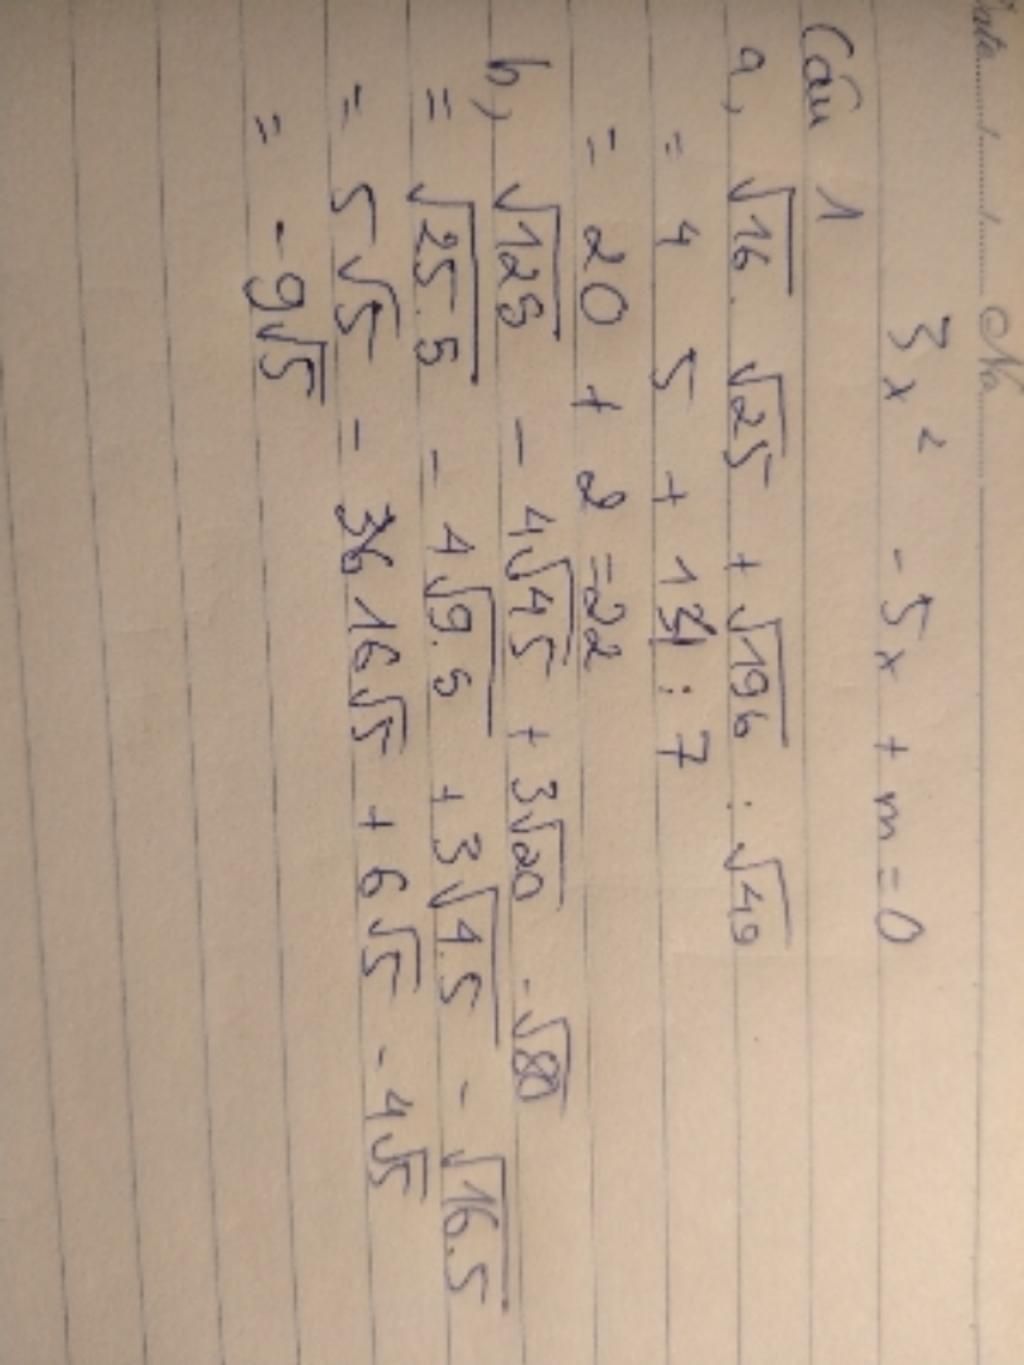 Date No
3x² - 5x + m = 0
Câu 1
a, √16. √25 + √196 : √49
= 4 5 + 14 : 7
= 20 + 2 = 22
b, √125 - 4√45 + 3√20 - √80
= √25.5 - 4√9.5 + 3√4.5 - √16.5
= 5√5 - 16√5 + 6√5 - 4√5
= -9√5